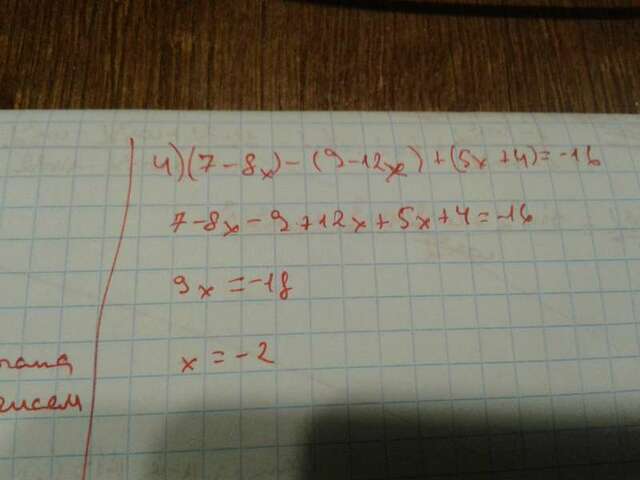 4)(7-8x)-(9-12x)+(5x+4)=-16
7-8x-9+12x+5x+4=-16
9x=-18
x=-2